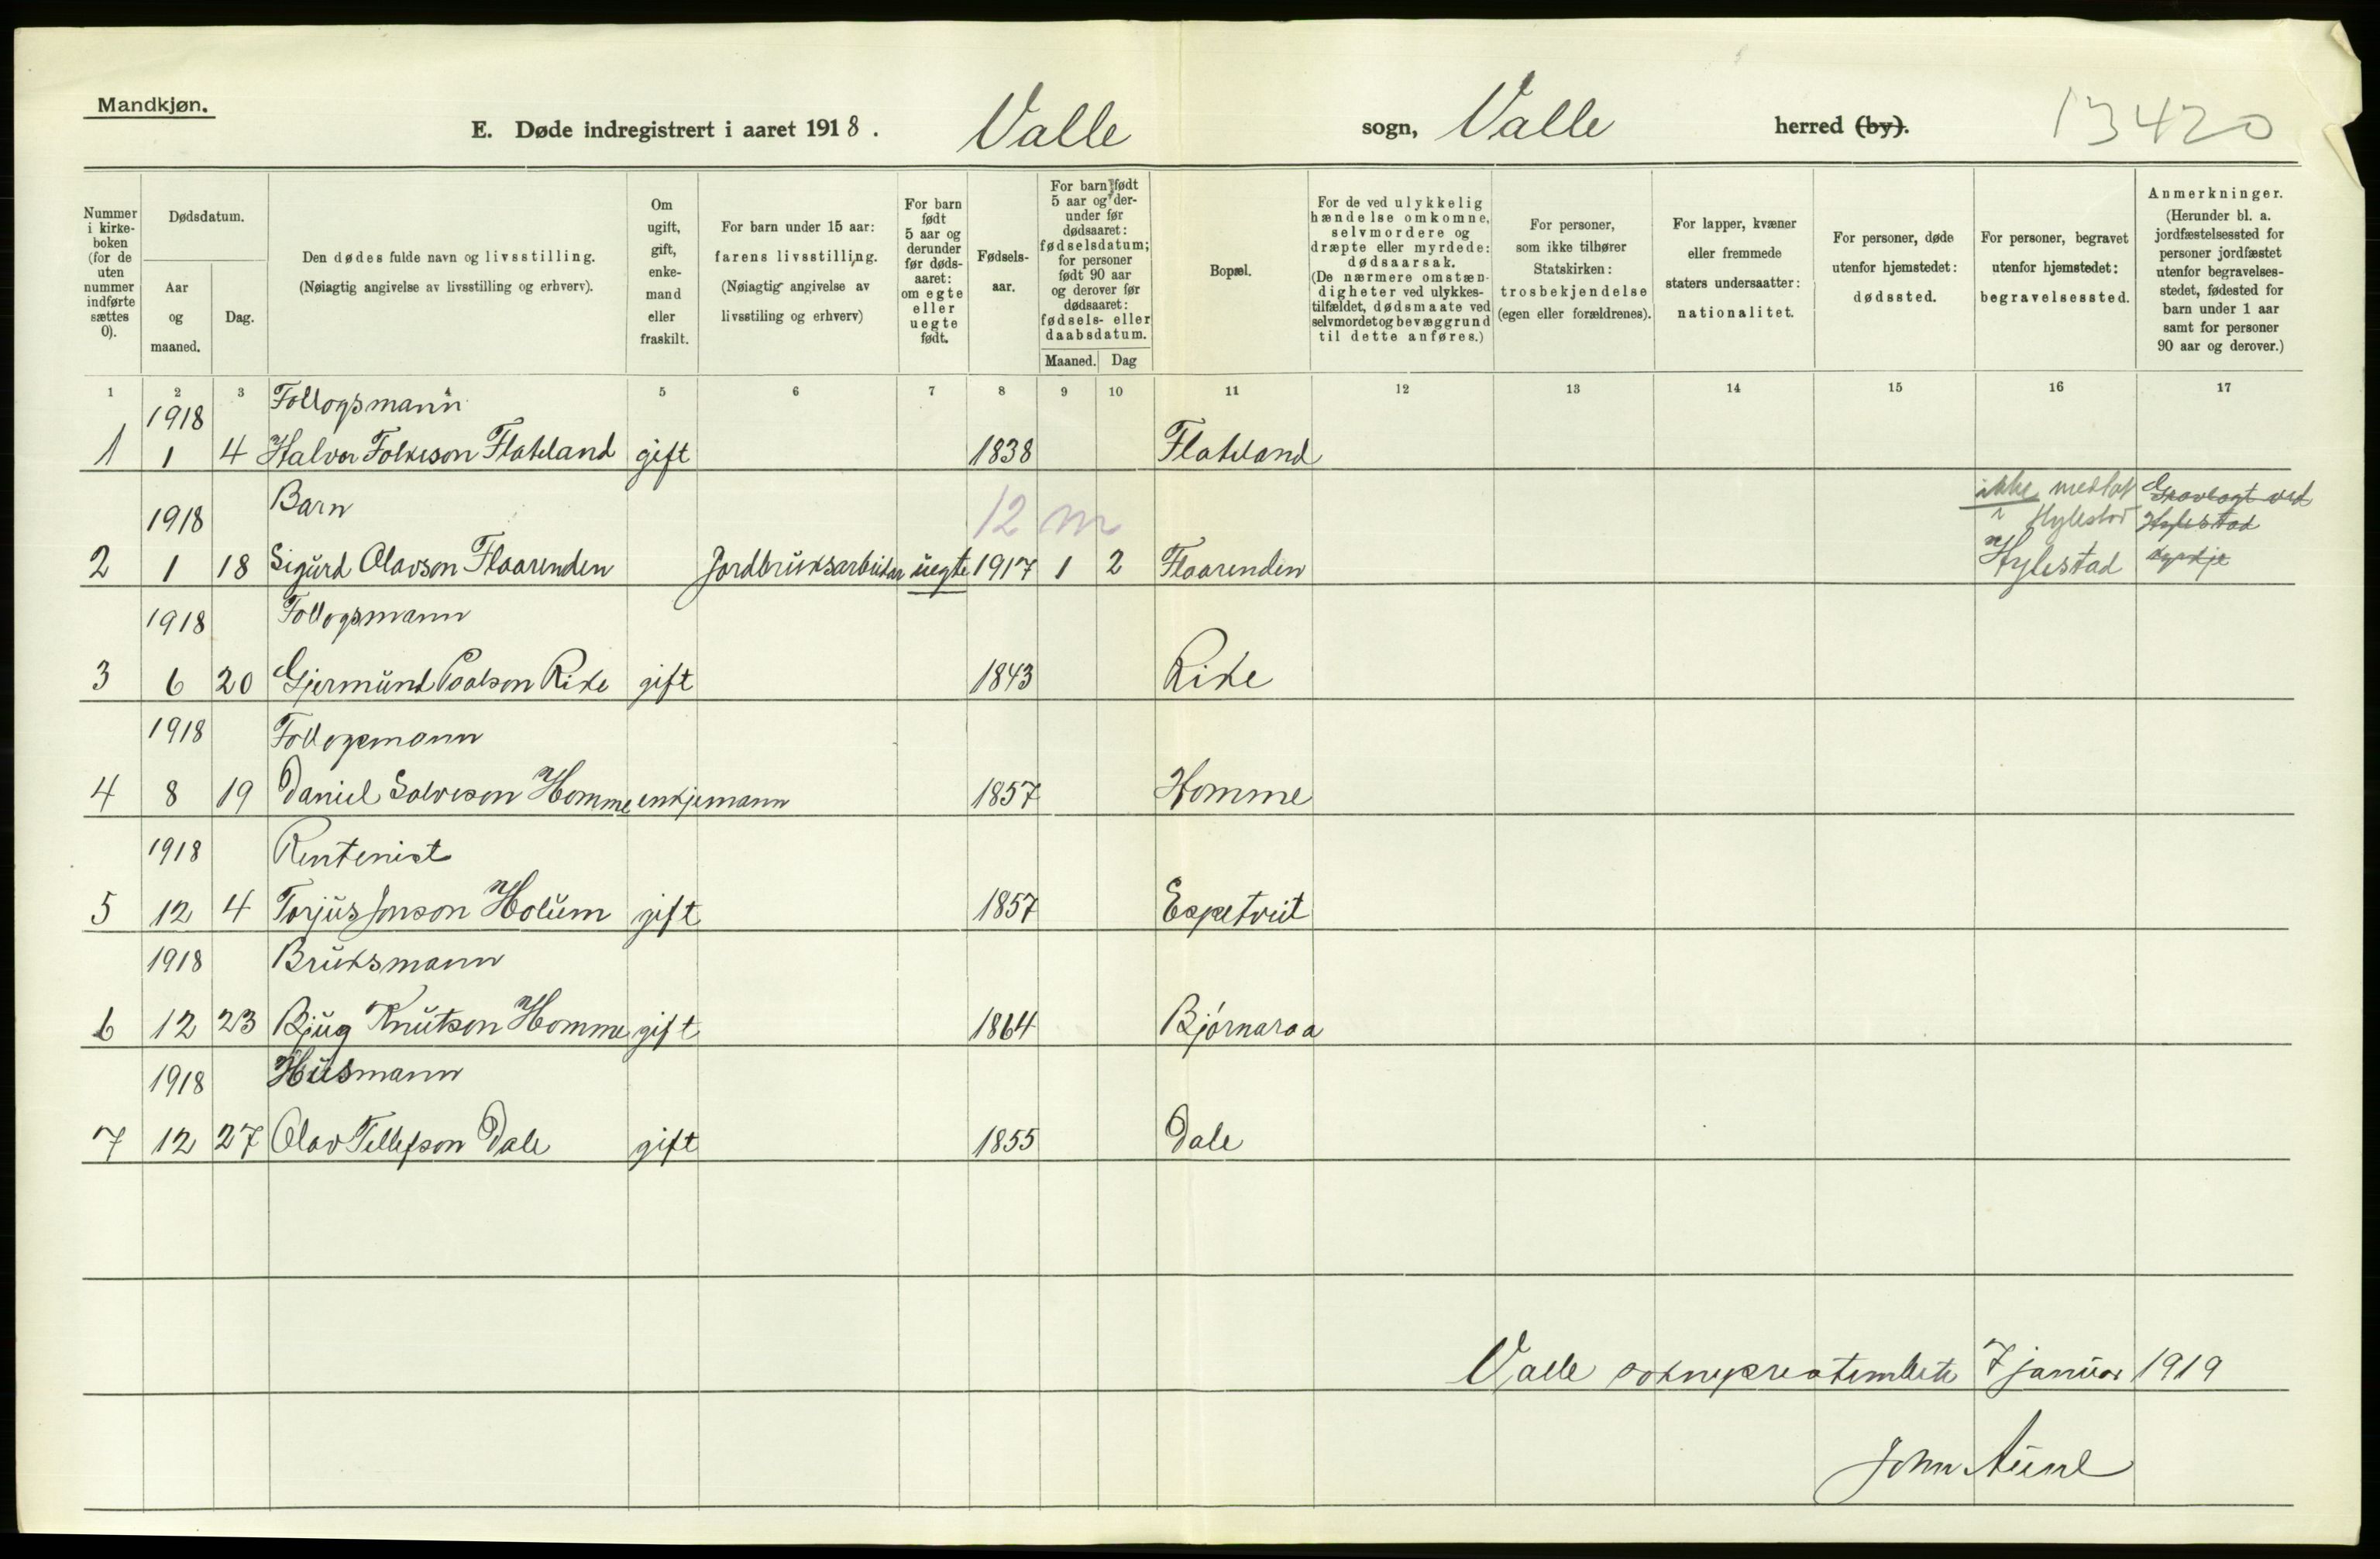 Mandkjøn.
E. Døde indregistrert i aaret 1918. Valle sogn, Valle herred (by). 13420
Nummer i kirke-boken (for de uten nummer indførte sættes 0).
Dødsdatum.
Aar og maaned.
Dag.
Den dødes fulde navn og livsstilling.
(Nøiagtig angivelse av livsstilling og erhverv).
Om ugift, gift, enke-mand eller fraskilt.
For barn under 15 aar:
farens livsstilling.
(Nøiagtig angivelse av livsstiling og erhverv)
For barn født 5 aar og derunder før døds-aaret: om egte eller uegte født.
Fødsels-aar.
For barn født 5 aar og der-under før dødsaaret: fødselsdatum; for personer født 90 aar og derover før dødsaaret: fødsels- eller daabsdatum.
Maaned. Dag
Bopæl.
For de ved ulykkelig hændelse omkomne, selvmordere og dræpte eller myrdede: dødsaarsak.
(De nærmere omstæn-digheter ved ulykkes-tilfældet, dødsmaate ved selvmordet og bevæggrund til dette anføres.)
For personer, som ikke tilhører Statskirken: trosbekjendelse (egen eller forældrenes).
For lapper, kvæner eller fremmede staters undersaatter: nationalitet.
For personer, døde utenfor hjemstedet: dødssted.
For personer, begravet utenfor hjemstedet: begravelsessted.
Anmerkninger.
(Herunder bl. a. jordfæstelsessted for personer jordfæstet utenfor begravelses-stedet, fødested for barn under 1 aar samt for personer 90 aar og derover.)
1 2 3 4 5 6 7 8 9 10 11 12 13 14 15 16 17
1918 Follogsmann
1 1 4 Halvor Folkeson Flateland gift 1838 Flateland
1918 Barn 12 m ikke medtat i Hylestad Gravlagt ved Hylestad kyrkje
2 1 18 Sigurd Olavson Flaarenden Jordbruksarbeidar uegte 1917 1 2 Flaarenden Hylestad
1918 Follogsmann
3 6 20 Gjermund Paalson Rike gift 1843 Rike
1918 Follogsmann
4 8 19 Daniel Salveson Homme enkjemann 1857 Homme
1918 Rentenist
5 12 4 Torjus Jonson Holum gift 1857 Espetveit
1918 Bruksmann
6 12 23 Bjug Knutson Homme gift 1864 Bjørnaraa
1918 Husmann
7 12 27 Olav Tellefson Dale gift 1855 Dale
Valle sokneprestembete 7 januar 1919
John Aune